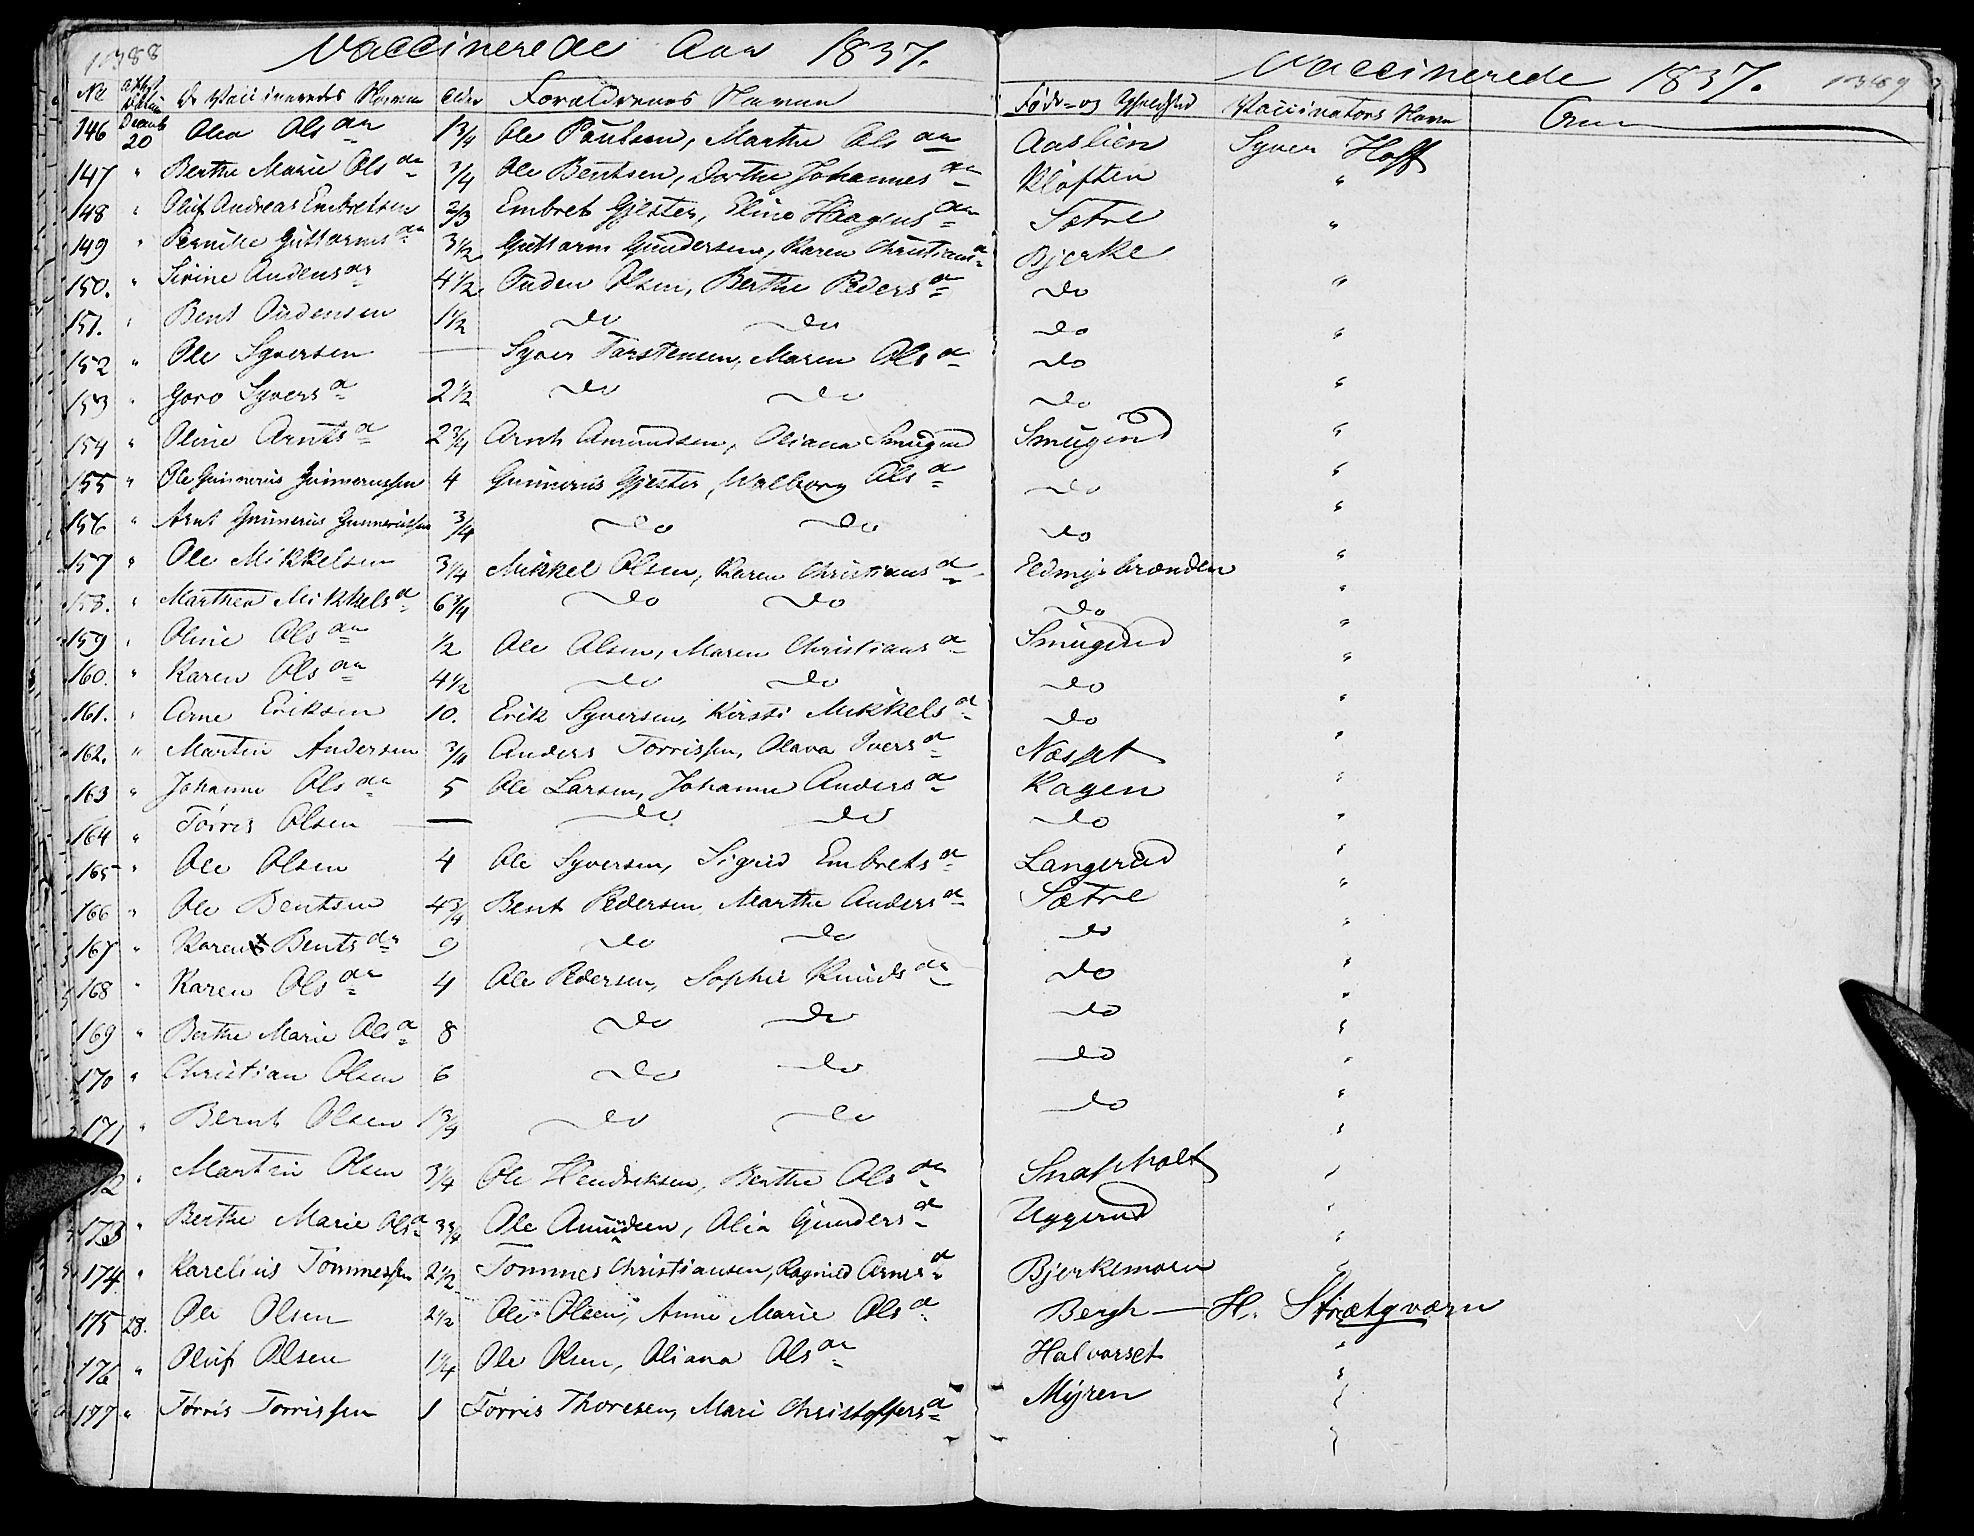 1388
Vaccinerede Aar 1837.
Vaccinerede 1837.
1389
No De Vaccineredes Navne Alder Forældrenes Navne Føde- og Opholdsted Vaccinators Navn Anm
146 Decemb 20 Olea Olsdn 1 3/4 Ole Paulsen, Marthe Olsdn Aaslien Syver Hoff
147 " Berthe Marie Olsdn 3/4 Ole Bentsen, Dorthe Johannesdn Kløften "
148 " Oluf Andreas Embretsen 2/3 Embret Gjester, Eline Haagensdn Sætre "
149 " Pernille Guttormsdn 3 1/2 Guttorm Gundersen, Karen Christiansd Bjerke
150. " Sirine Audensdn 4 1/2 Auden Olsen, Berthe Pedersd do "
151. " Bent Audensen 1 1/2 do do do "
152 " Ole Syversen — Syver Tarstensen, Maren Olsd do
153 " Goro Syversd 2 1/2 do do do "
154 " Oline Arntsd 2 3/4 Arnt Amundsen, Oliana Smugud Smugurd "
155 " Ole Gunnerius Gunneriussen 4 Gunnerius Gjester, Walborg Olsd do "
156 " Arnt Gunnerius Gunneriussen 3/4 do do do "
157 " Ole Mikkelsen 3 1/4 Mikkel Olsen, Karen Christiansd "
158. " Marthea Mikkelsd 6 3/4 do do do "
159 " Oline Olsdn 1/2 Ole Olsen, Maren Christiansd Smugurd "
160. " Karen Olsdn 4 1/2 do do do "
161. " Arne Eriksen 10. Erik Syversen, Kirsti Mikkelsd do "
162. " Martin Andersen 3/4 Anders Torrissen, Olava Iversd Næsset "
163 " Johanne Olsdn 5 Ole Larsen, Johanne Andersd Kagen "
164 " Torris Olsen — do do do "
165 " Ole Olsen 4 Ole Syversen, Sigrid Embretsd Langerud "
166 " Ole Bentsen 4 3/4 Bent Pedersen, Marthe Andersd Sætre "
167 " Karen Bentsdn 9 do do do "
168 " Karen Olsdn 4 Ole Pedersen, Sophie Knudsdn do "
169 " Berthe Marie Olsd 8 do do do "
170 " Christian Olsen 6 do do do "
171 " Bernt Olsen 1 3/4 do do do "
172 " Martin Olsen 3/4 Ole Hendriksen, Berthe Olsdn "
173 " Berthe Marie Olsd 3 3/4 Ole Amundsen, Olia Gundersd Uggerud "
174 " Karelius Tommessen 2 1/2 Tommes Christiansen, Ragnild Arnesd Bjerkemoen "
175 28. Ole Olsen 2 1/2 Ole Olsen, Anne Marie Olsd Bergh — H. Strætqværn
176 " Oluf Olsen 1 1/4 Ole Olsen, Oliana Olsdn Halvorset "
177 " Torris Torrissen 1 Torris Thoresen, Mari Christoffersd Myren "